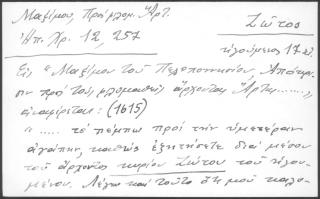 Μαξίμου, Πρὸς μλομ. Ἄρτ.
Ἠπ. Χρ. 12, 257
Ζῶτος
ἡγούμενος 17 αἰ.
Εἰς "Μαξίμου τοῦ Πελοποννησίου, Ἀπόκρι-
σιν πρὸς τοὺς
ἄρχοντας Ἄρτης......,
ἀναφέρεται: (1615)
"..... τὸ πέμπω πρὸς τὴν ὑμετέραν
ἀγάπην, καθὼς ἐζητήσετε διὰ μέσου
τοῦ ἄρχοντος κυρίου Ζώτου τοῦ ἡγου-
μένου. Λέγω καὶ τοῦτο ὅτι μοῦ καλο-